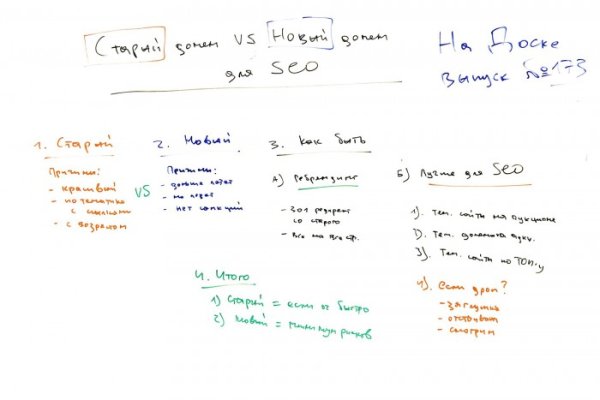 Старый домен VS Новый домен
для SEO
На Доске
выпуск №173
1. Старый
Причины:
- красивый
- по тематике
с ссылками
- с возрастом
VS
2. Новый
Причины:
- дольше
- не
- нет санкций
3. Как быть
А) Ребрендинг
- 301 редирект
со старого
- все на все стр.
Б) Лучше для SEO
1). Тем. сайты на аукционе
2). Тем. домена аукц.
3). Тем. сайты по ТОП-у
4). Если дроп?
- заглушка
- отстаивам
- смотрим
4. Итого
1) Старый = если ок быстро
2) Новый = минимум рисков